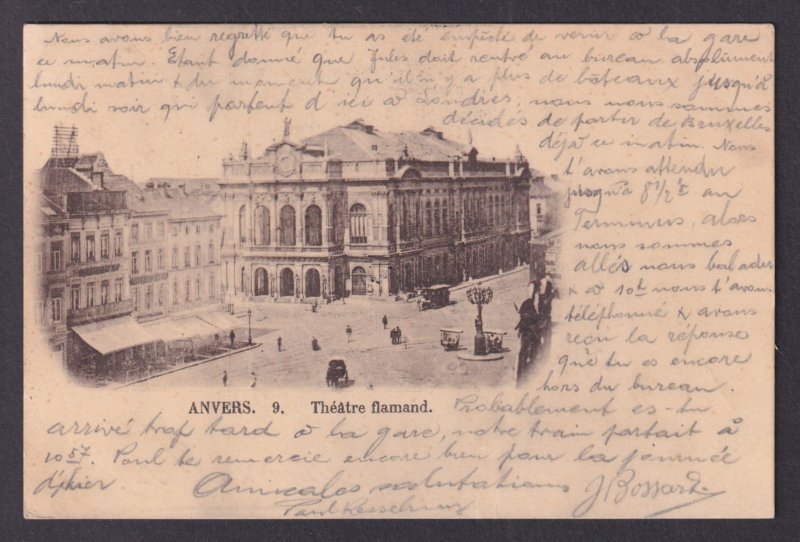 Nous avons bien regretté que tu as été empêché de venir à la gare
ce matin. Etant donné que Jules doit rentré au bureau absolument
lundi matin & du moment qu'il n'y a plus de bâteaux jusqu'à
lundi soir qui partent d'ici à Londres, nous nous sommes
décidés de partir de Bruxelles
déjà ce matin. Nous
t'avons attendu
jusqu'à 8 1/2 au
Terminus, alors
nous sommes
allés nous balader
& à 10h nous t'avons
téléphonné & avons
reçu la réponse
que tu es encore
hors du bureau.
ANVERS. 9. Théâtre flamand.
Probablement es-tu
arrivé trop tard à la gare, notre train partait à
10 57. Paul te remercie encore bien pour la journée
d'hier.
Amicales salutations J Bossard
Paul